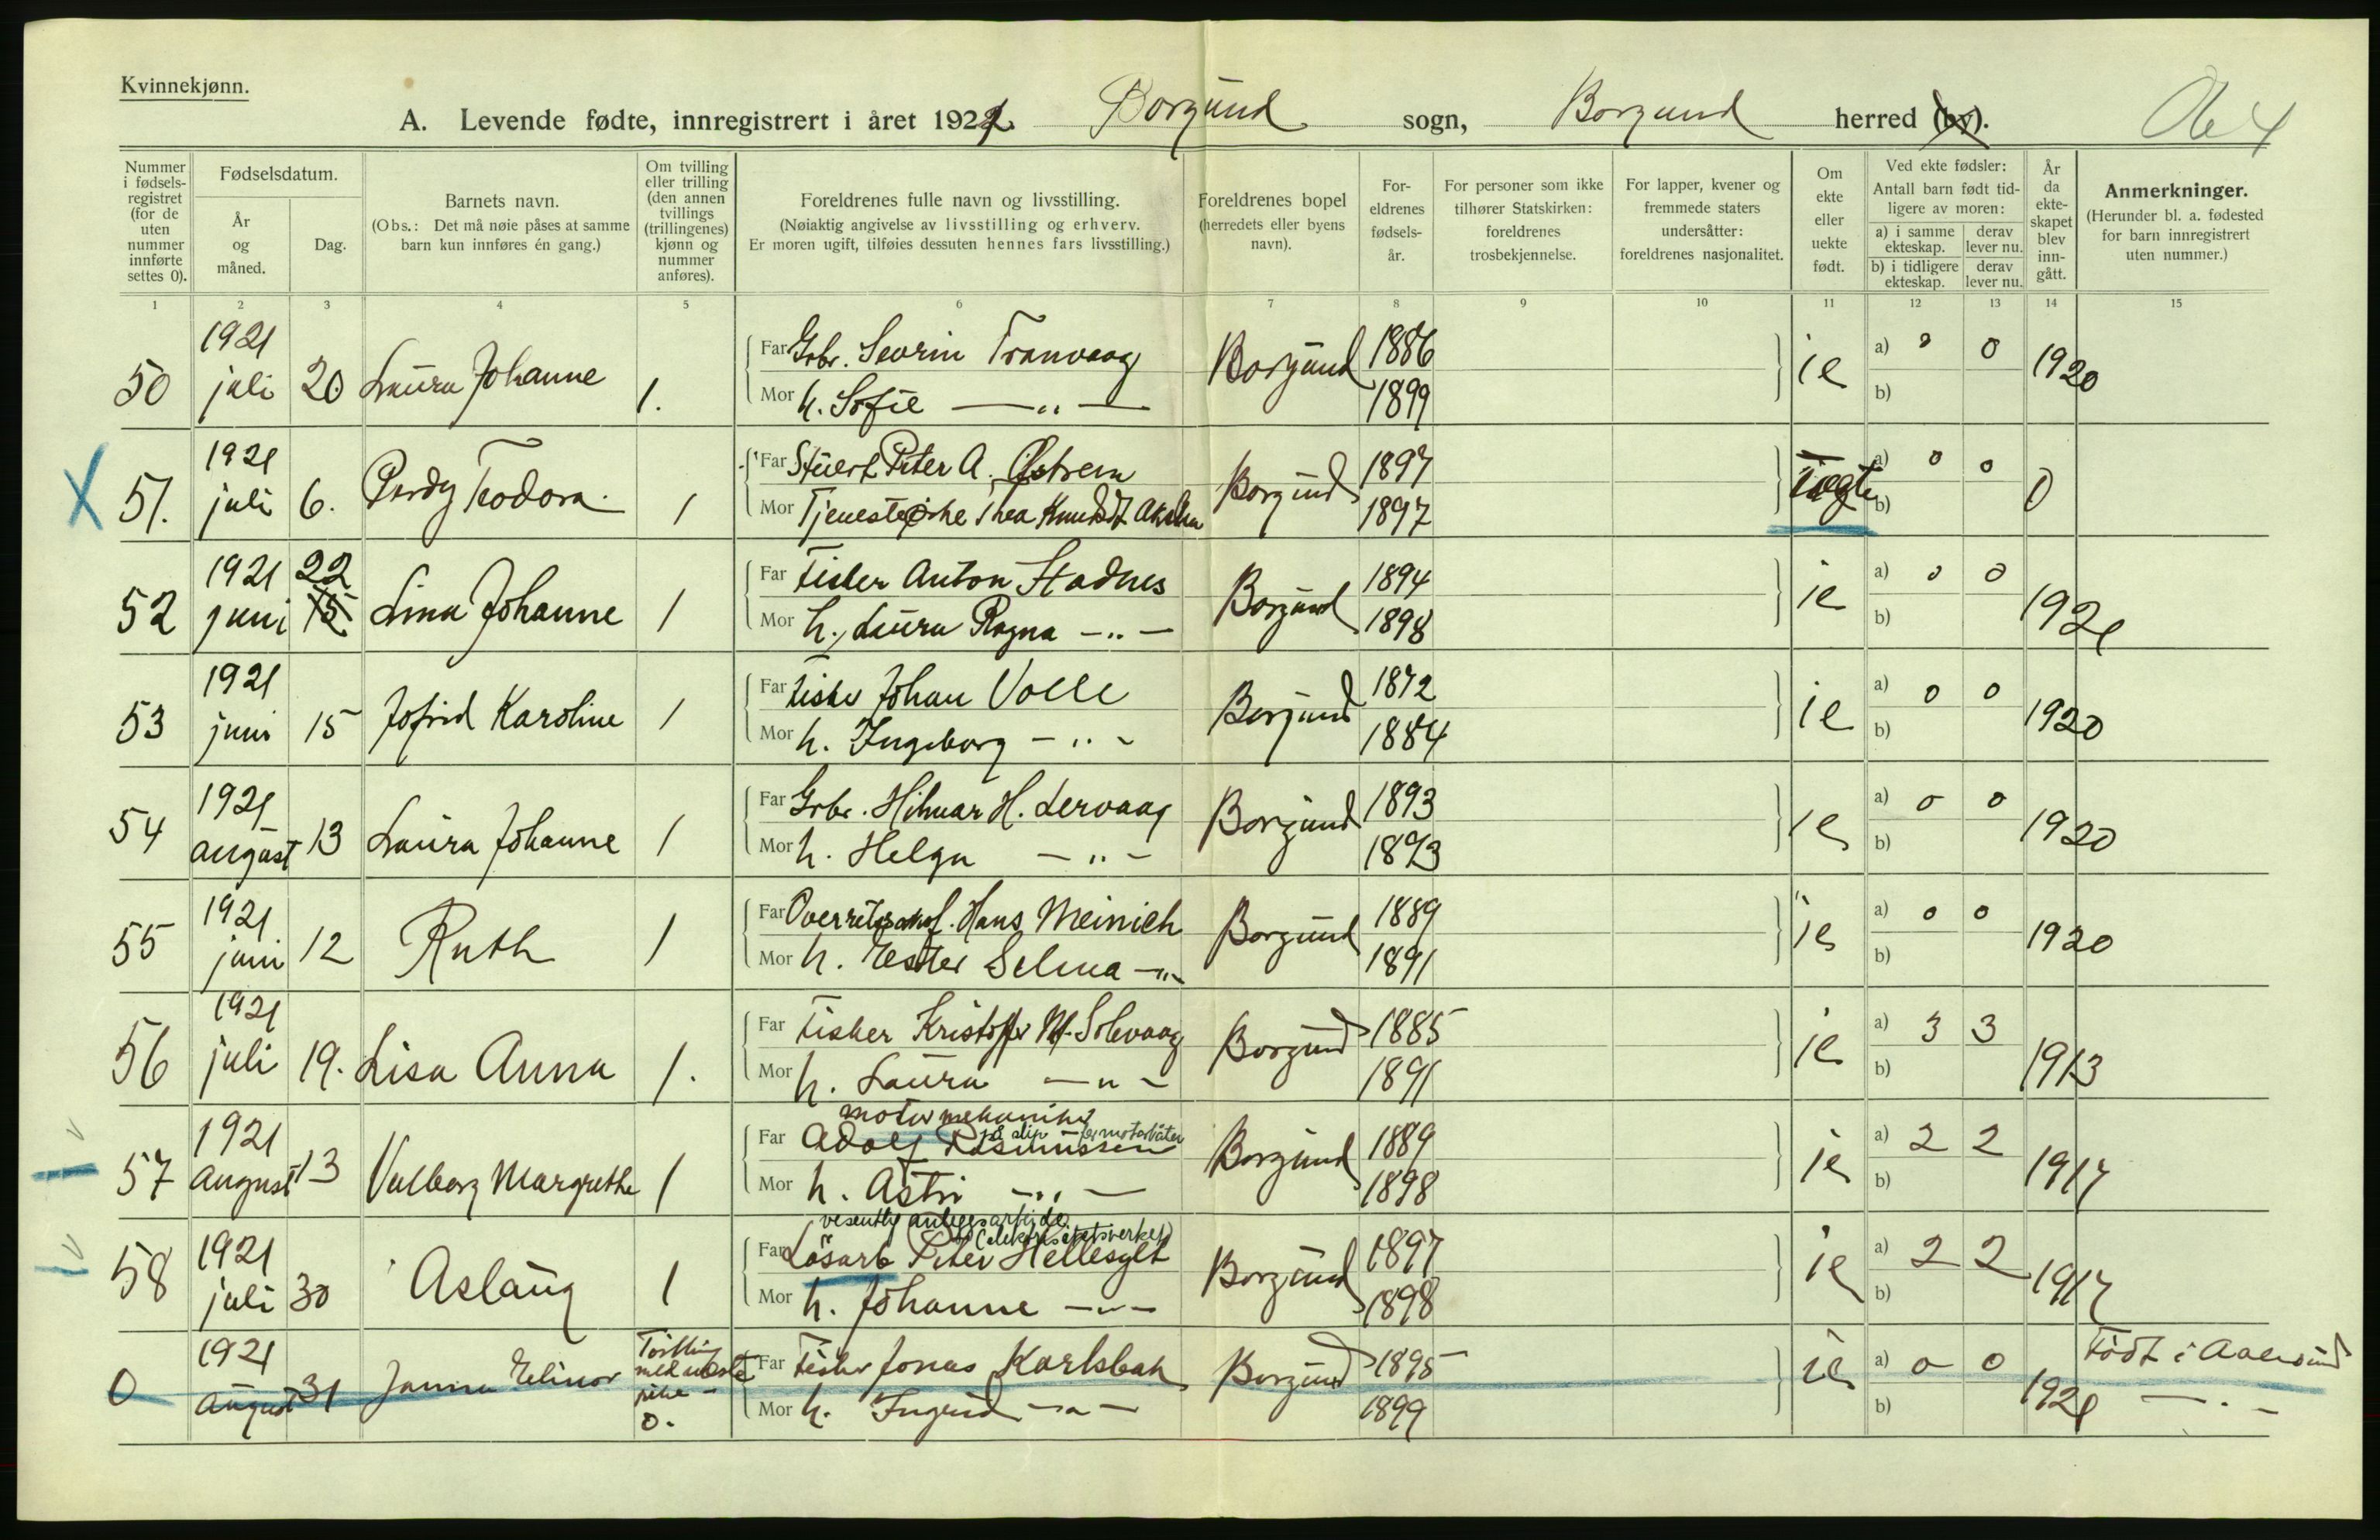 Kvinnekjønn.
A. Levende fødte, innregistrert i året 1921. Borgund sogn, Borgund herred (by).
Nummer i fødsels-registret (for de uten nummer innførte settes 0).
Fødselsdatum.
År og måned.
Dag.
Barnets navn.
(Obs.: Det må nøie påses at samme barn kun innføres én gang.)
Om tvilling eller trilling (den annen tvillings (trillingenes) kjønn og nummer anføres).
Foreldrenes fulle navn og livsstilling.
(Nøiaktig angivelse av livsstilling og erhverv.
Er moren ugift, tilføies dessuten hennes fars livsstilling.)
Foreldrenes bopel (herredets eller byens navn).
For-eldrenes fødsels-år.
For personer som ikke tilhører Statskirken: foreldrenes trosbekjennelse.
For lapper, kvener og fremmede staters undersåtter: foreldrenes nasjonalitet.
Om ekte eller uekte født.
Ved ekte fødsler:
Antall barn født tid-ligere av moren:
a) i samme ekteskap.
derav lever nu.
b) i tidligere ekteskap.
derav lever nu.
År da ekte-skapet blev inn-gått.
Anmerkninger.
(Herunder bl. a. fødested for barn innregistrert uten nummer.)
1 2 3 4 5 6 7 8 9 10 11 12 13 14 15
50 1921 juli 20 Laura Johanne 1. Far Grbr. Sevrin Tranvaag Borgund 1886 ie a) 0 0 1920
Mor h. Sofie —"— 1899 b)
51. 1921 juli 6. Perdy Teodora. 1 Far Stuert Peter A. Østrem Borgund 1897 a) 0 0 0
Mor Tjenestepike Thea 1897 b)
52 1921 juni 22 15 Lina Johanne 1 Far Fisker Anton Stadnes Borgund 1894 ie a) 0 0 1921
Mor h. Laura Ragna —"— 1898 b)
53 1921 juni 15 Jofrid Karoline 1 Far Fisker Johan Volle Borgund 1872 ie a) 0 0 1920
Mor h. Ingeborg —"— 1884 b)
54 1921 august 13 Laura Johanne 1 Far Grbr. Hilmar H. Lervaag Borgund 1893 ie a) 0 0 1920
Mor h. Helga —"— 1893 b)
55 1921 juni 12 Ruth 1 Far Overretssakf. Hans Meinich Borgund 1889 ie a) 0 0 1920
Mor h. Ester Selma —"— 1891 b)
56 1921 juli 19. Lisa Anna 1. Far Fisker Kristoffer M. Solevaag Borgund 1885 ie a) 3 3 1913
Mor h. Laura —"— 1891 b)
motormekaniker
på slip for motorbåter
57 1921 august 13 Valborg Margrethe 1 Far Adolf Rasmussen Borgund 1889 ie a) 2 2 1917
Mor h. Astri —"— 1898 b)
vesentlig anlegsarbeide
(elektrisitetsverket)
58 1921 juli 30 Aslaug 1 Far Løsarb Peter Hellesylt Borgund 1897 ie a) 2 2 1917
Mor h. Johanne —"— 1898 b)
0 1921 august 31 Janna Elinor Tvilling med næste pike 0. Far Fisker Jonas Karlsbak Borgund 1895 ie a) 0 0 1921 Født i Aalesund
Mor h. Ingrid —"— 1899 b) —"—